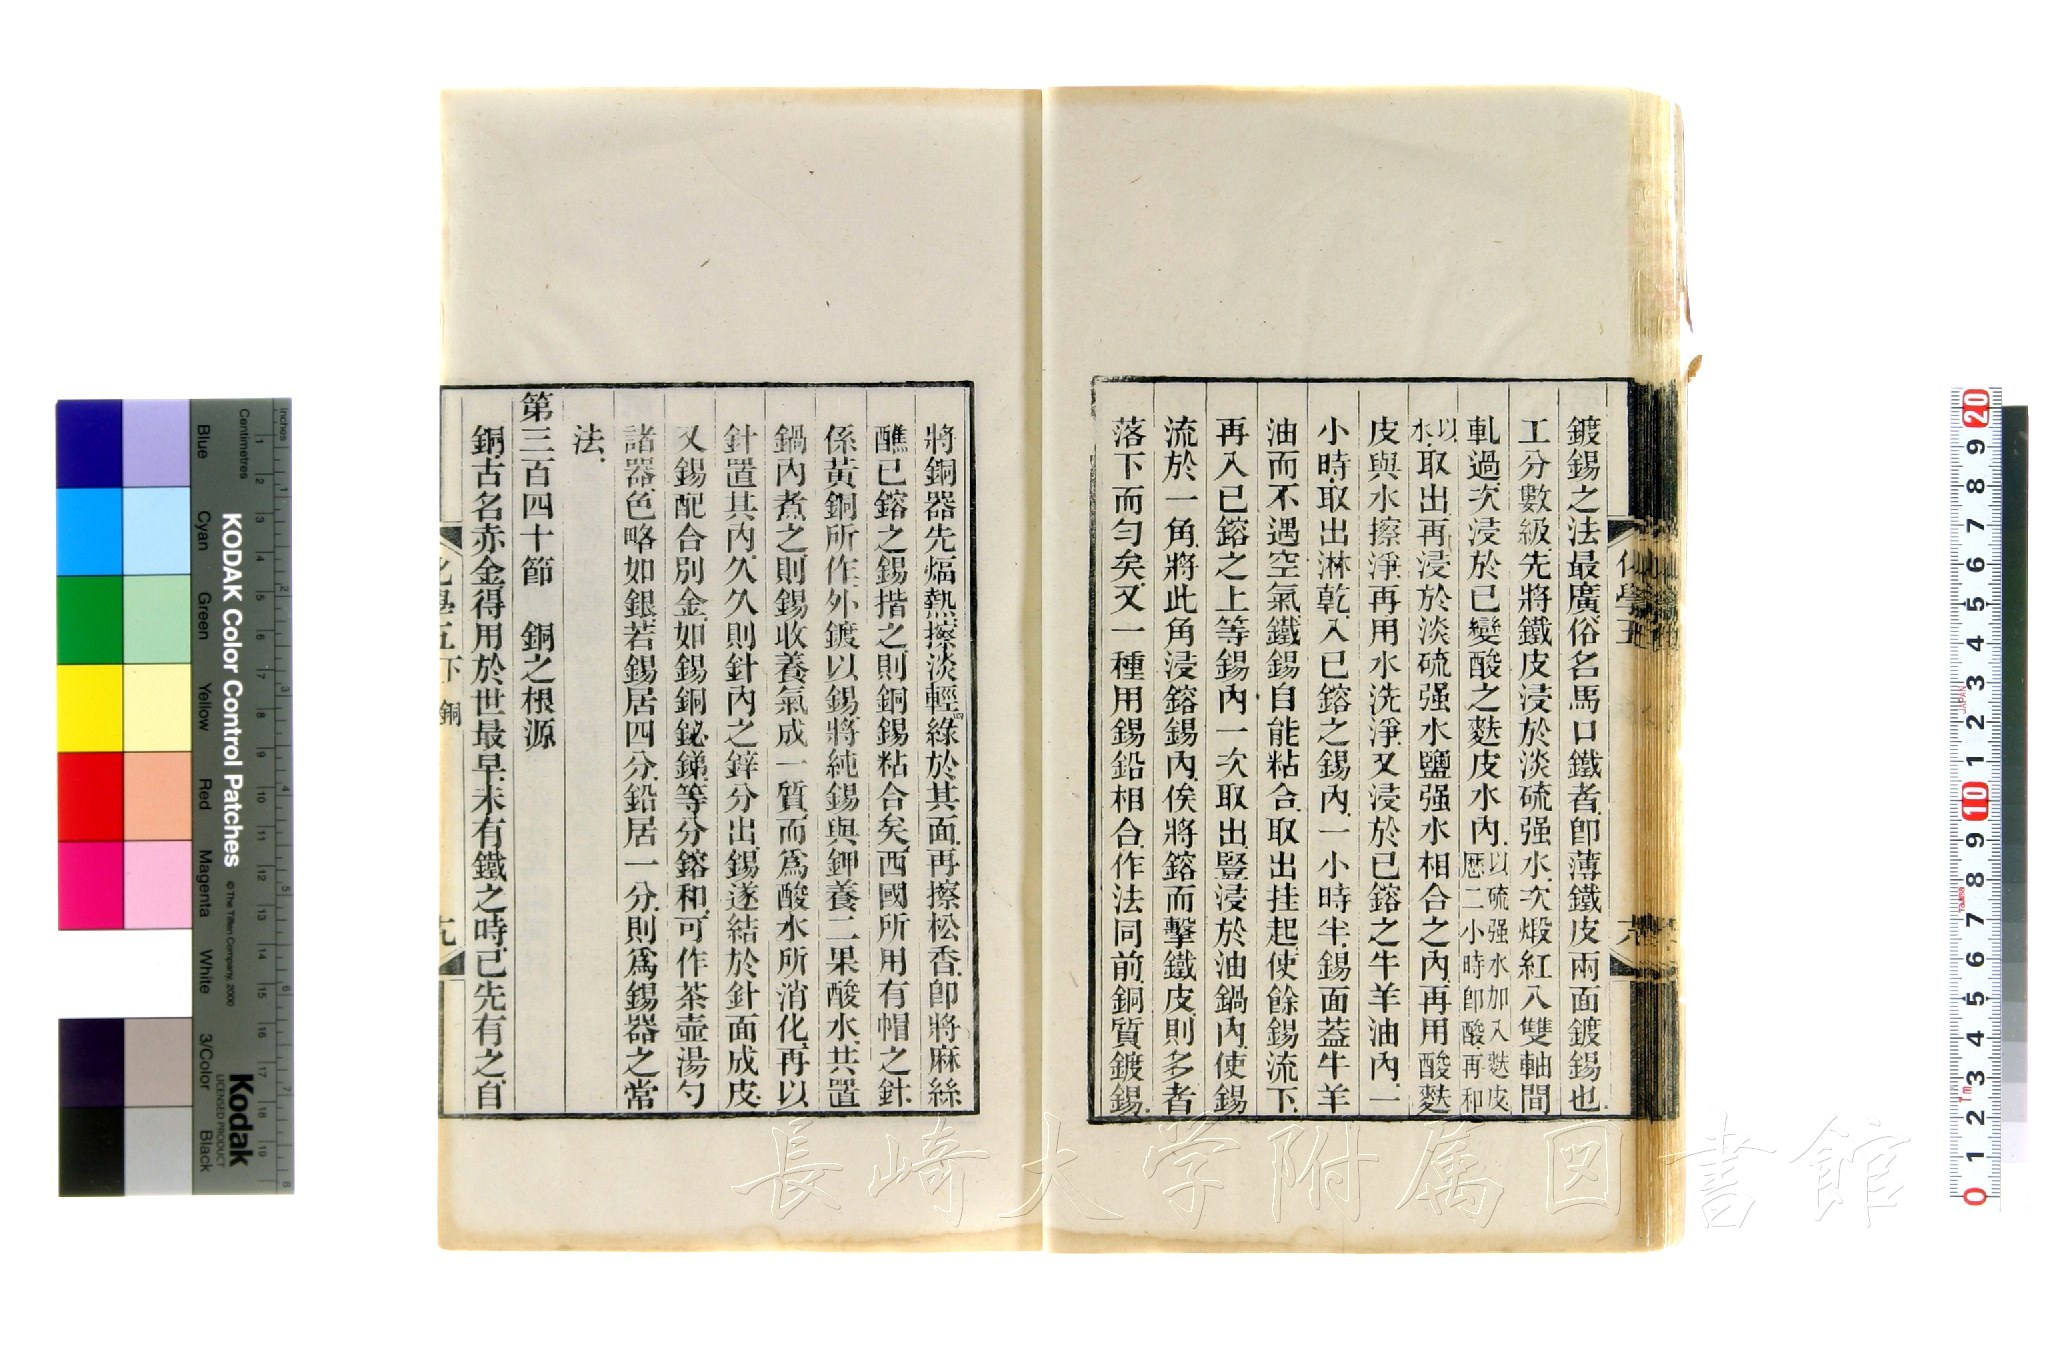 鍍錫之法最廣俗名馬口鐵者卽薄鐵皮兩面鍍錫也
工分數級先將鐵皮浸於淡硫强水次煅紅入雙軸間
軋過次浸於已變酸之麩皮水內以硫强水加入麩皮歷二小時卽酸再和
以水取出再浸於淡硫强水鹽强水相合之內再用酸麩
皮與水擦淨再用水洗淨又浸於已鎔之牛羊油內一
小時取出淋乾入已鎔之錫內一小時半錫面蓋牛羊
油而不遇空氣鐵錫自能粘合取出挂起使餘錫流下
再入已鎔之上等錫內一次取出豎浸於油鍋內使錫
流於一角將此角浸鎔錫內俟將鎔而擊鐵皮則多者
落下而勻矣又一種用錫鉛相合作法同前銅質鍍錫
將銅器先煏熱擦淡輕四綠於其面再擦松香卽將麻絲
醮已鎔之錫揩之則銅錫粘合矣西國所用有帽之針
係黃銅所作外鍍以錫將純錫與鉀養二果酸水共置
鍋內煮之則錫收養氣成一質而爲酸水所消化再以
針置其內久久則針內之鋅分出錫遂結於針面成皮
又錫配合別金如錫銅鉍銻等分鎔和可作茶壺湯勺
諸器色略如銀若錫居四分鉛居一分則爲錫器之常
法
第三百四十節 銅之根源
銅古名赤金得用於世最早未有鐵之時已先有之自
化學五下 銅
十九
KODAK Color Control Patches
© The Tiffen Company, 2000
Kodak
LICENSED PRODUCT
Inches
Centimetres
Blue
Cyan
Green
Yellow
Red
Magenta
White
3/Color
Black
長崎大学附属図書館